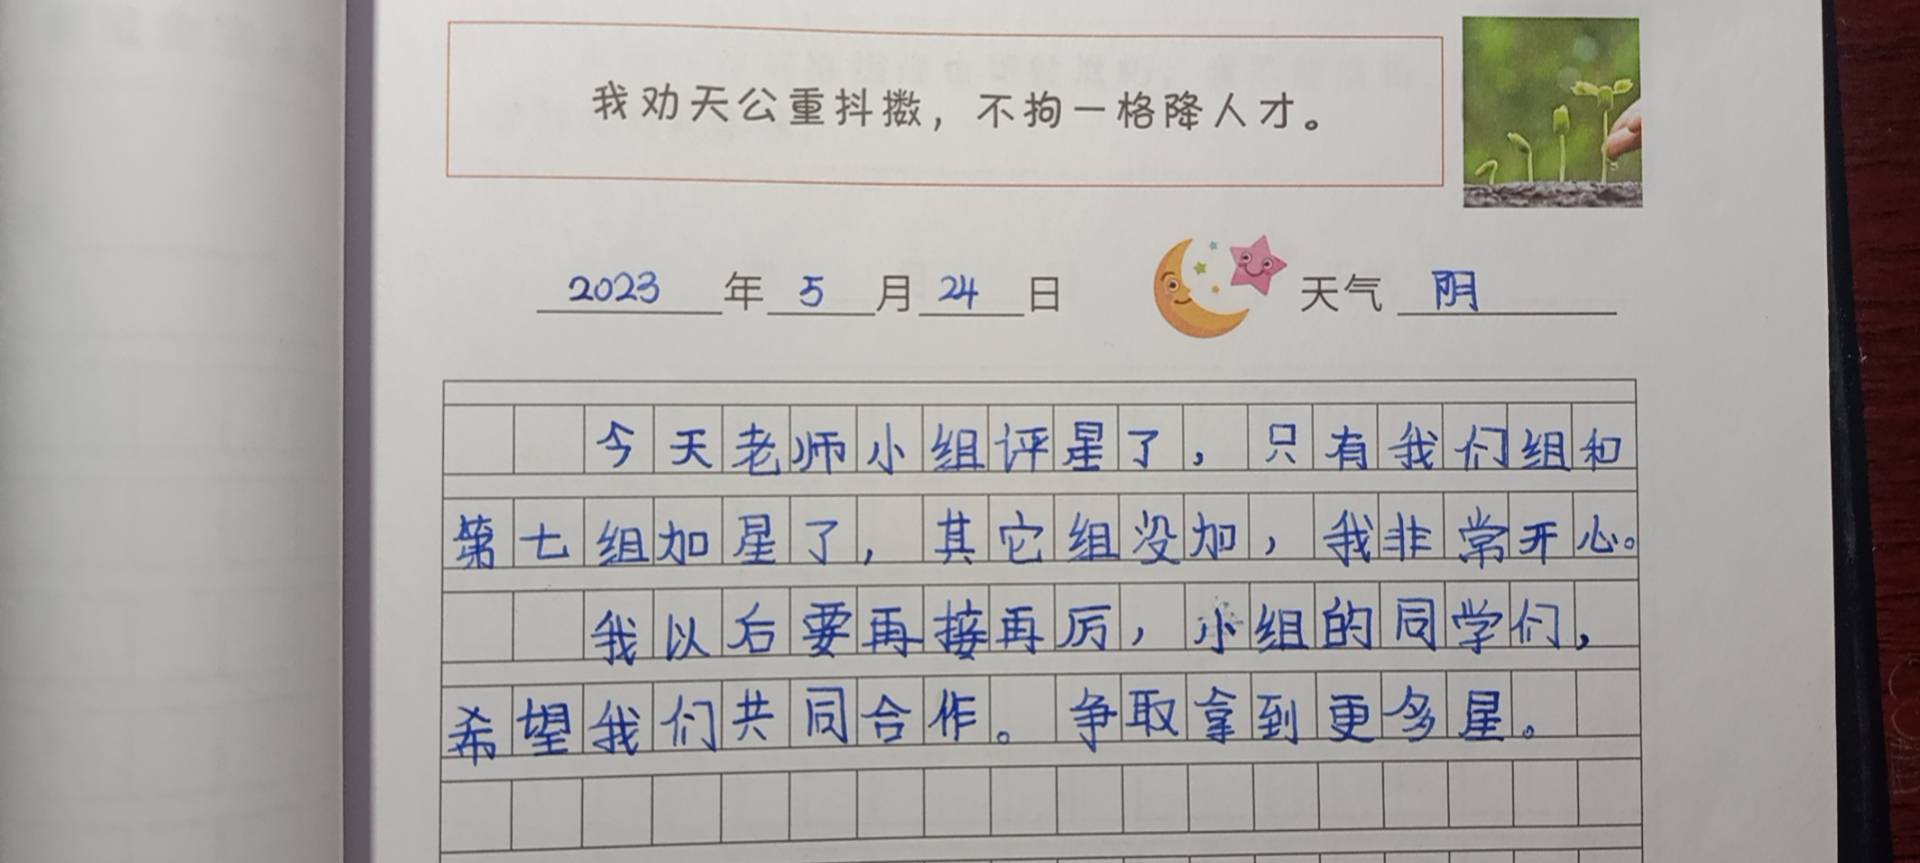 我劝天公重抖擞，不拘一格降人才。
2023年5月24日 天气 阴
今天老师小组评星了，只有我们组和
第七组加星了，其它组没加，我非常开心。
我以后要再接再厉，小组的同学们，
希望我们共同合作。争取拿到更多星。